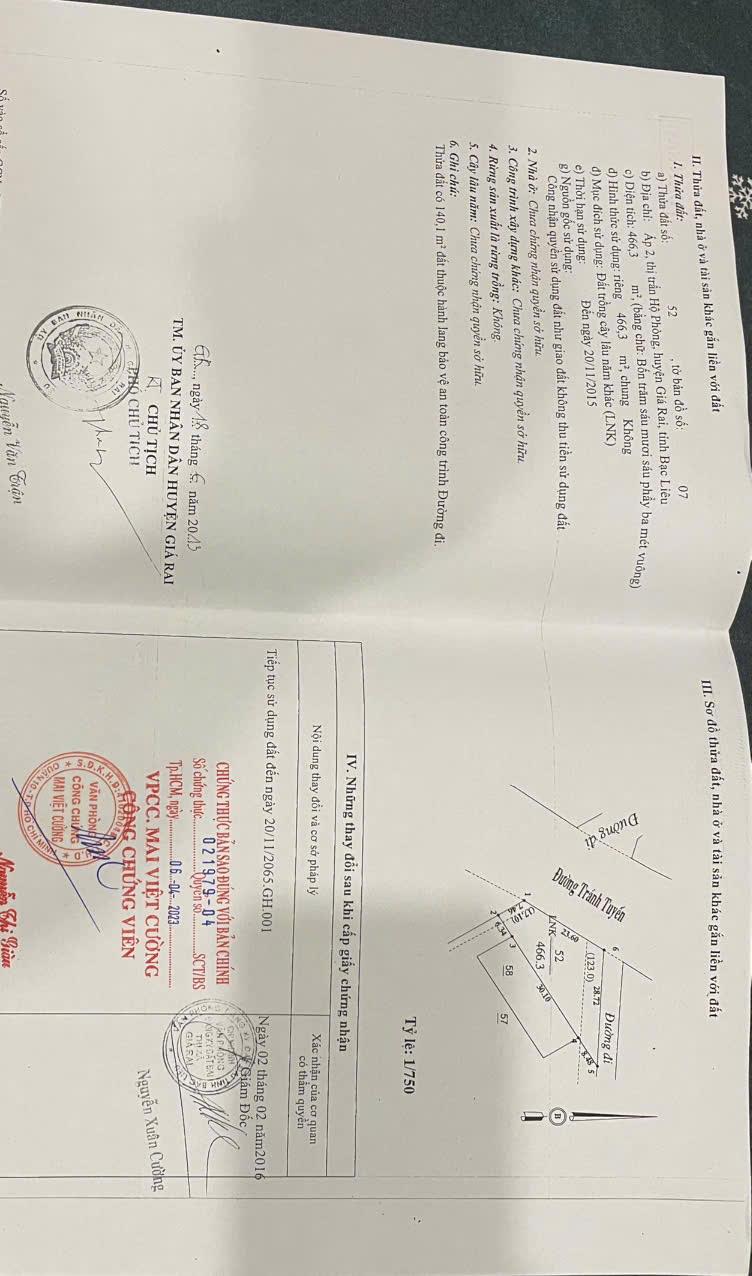 II. Thửa đất, nhà ở và tài sản khác gắn liền với đất
1. Thửa đất:
a) Thửa đất số: 52 , tờ bản đồ số: 07
b) Địa chỉ: Ấp 2, thị trấn Hộ Phòng, huyện Giá Rai, tỉnh Bạc Liêu
c) Diện tích: 466,3 m², (bằng chữ: Bốn trăm sáu mươi sáu phẩy ba mét vuông)
d) Hình thức sử dụng: riêng 466,3 m², chung Không
đ) Mục đích sử dụng: Đất trồng cây lâu năm khác (LNK)
e) Thời hạn sử dụng: Đến ngày 20/11/2015
g) Nguồn gốc sử dụng:
Công nhận quyền sử dụng đất như giao đất không thu tiền sử dụng đất
2. Nhà ở: Chưa chứng nhận quyền sở hữu.
3. Công trình xây dựng khác: Chưa chứng nhận quyền sở hữu.
4. Rừng sản xuất là rừng trồng: Không.
5. Cây lâu năm: Chưa chứng nhận quyền sở hữu.
6. Ghi chú:
Thửa đất có 140,1 m² đất thuộc hành lang bảo vệ an toàn công trình Đường đi.
ngày 18 tháng 6 năm 2013
TM. ỦY BAN NHÂN DÂN HUYỆN GIÁ RAI
KT CHỦ TỊCH
PHÓ CHỦ TỊCH
Nguyễn Văn Trận
III. Sơ đồ thửa đất, nhà ở và tài sản khác gắn liền với đất
Đường đi
Đường Tránh Tuyến
Đường đi
6
(123.0) 28.72
5
8.48
4
23.60
1
LNK 52
466.3
30.10
(17.10)
2
6.34
3
58
57
B
Tỷ lệ: 1/750
IV. Những thay đổi sau khi cấp giấy chứng nhận
Nội dung thay đổi và cơ sở pháp lý
Xác nhận của cơ quan
có thẩm quyền
Tiếp tục sử dụng đất đến ngày 20/11/2065.GH.001
Ngày 02 tháng 02 năm2016
Giám Đốc
Nguyễn Xuân Cường
CHỨNG THỰC BẢN SAO ĐÚNG VỚI BẢN CHÍNH
Số chứng thực 021979-04 Quyển số SCT/BS
Tp.HCM, ngày 06-04-2023
VPCC. MAI VIỆT CƯỜNG
CÔNG CHỨNG VIÊN
VĂN PHÒNG
CÔNG CHỨNG
MAI VIỆT CƯỜNG
TP HỒ CHÍ MINH